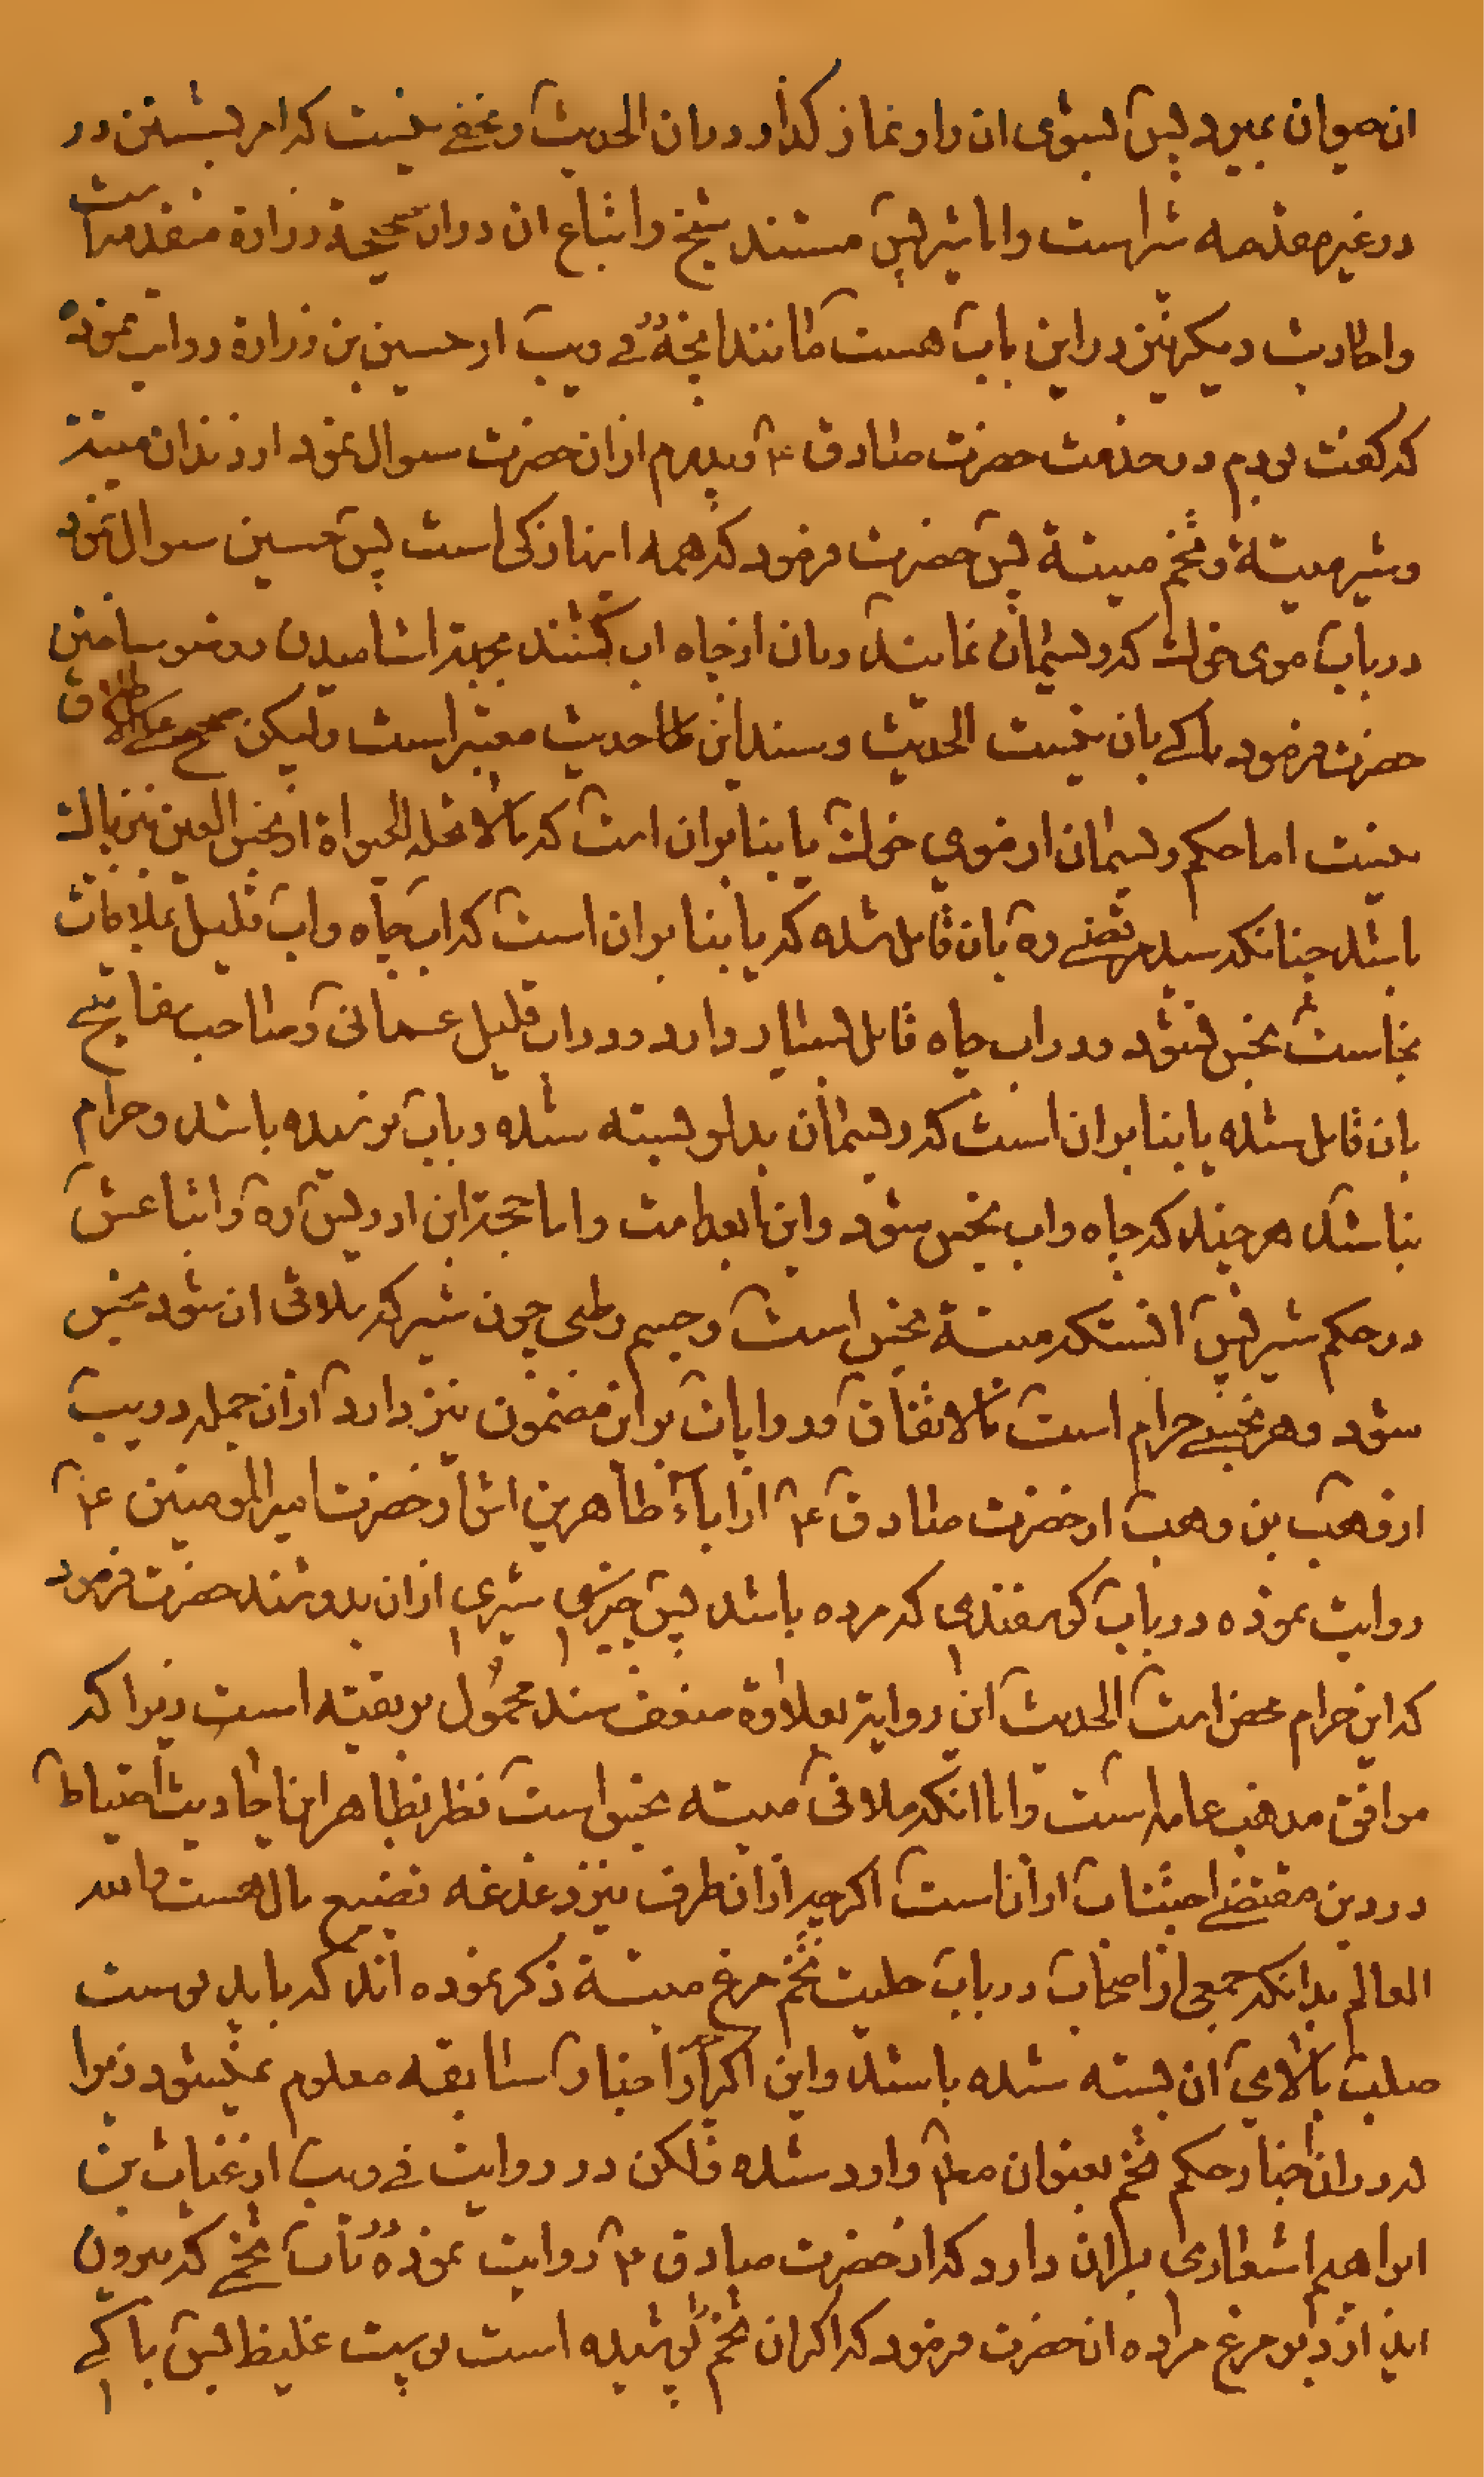 ان حیوان بمیرد پس بشوی ان را و نماز کذار در ان الحدیث و مخفی نیست که امر بشستن در
در غیر مقدمه شراست و اما شیر پس مستند شیخ و اتباع ان در ان صحیحة زرارة متقدمه است
و احادیث دیکر نیز در این باب هست مانند انچه در فی ویب از حسین بن زرارة روایت نموده
که کفت بودم در خدمت حضرت صادق ع و پدرم از ان حضرت سوال نمود از دندان میتة
و شیر میتة و تخم میتة پس حضرت فرمود که همه اینها زکی است پس حسین سوال نمود
در باب موی خوک که ریسمان نمایند و بان از چاه اب کشند بجهة اشامیدن و وضو ساختن
حضرت فرمود باکی بان نیست الحدیث و سند این حدیث معتبر است و لیکن صحیح علی الاطلاق
نیست اما حکم ریسمان از موی خوک یا بنا بر ان است که مالا تحله الحیوة از نجس العین نیز پاک
باشد چنانکه سید مرتضی ره بان قایل شده که یا بنا بر ان است که اب چاه و اب قلیل بملاقات
نجاست نجس نشود و در اب چاه قایل بسیار دارد و در اب قلیل عمانی و صاحب مفاتیح
بان قایل شده یا بنا بر ان است که ریسمان بدلو بسته شده و باب نرسیده باشد و حرام
نباشد هر چند که چاه و اب نجس شود و این ابعد است و اما حجة ابن ادریس ره و اتباعش
در حکم شیر پس انستکه میتة نجس است و جسم رطبی چون شیر که ملاقی ان شود نجس
شود و هر نجسی حرام است بالاتفاق و روایات بر این مضمون نیز دارد از ان جمله در یب
از وهب بن وهب از حضرت صادق ع از اباء طاهرین اش از حضرت امیر المومنین ع
روایت نموده در باب کوسفندی که مرده باشد پس شیری از ان بدوشند حضرت فرمود
که این حرام محض است الحدیث این روایة بعلاوة ضعف سند محمول بر تقیه است زیرا که
موافق مذهب عامه است و اما انکه ملاقی میته نجس است نظر بظاهر اینها احادیث احتیاط
در دین مقتضی اجتناب از ان است اکرچه از ان طرف نیز دغدغه تضییع مال هست والله
العالم بدانکه جمعی از اصحاب در باب حلیت تخم مرغ میتة ذکر نموده اند که باید پوست
صلب بالای ان بسته شده باشد و این اکر از اخبار سابقه معلوم نمیشود زیرا
که در ان اخبار حکم تخم بعنوان مطلق وارد شده و لکن در روایت فی ویب از غیاث بن
ابراهیم اشعاری بران دارد که از حضرت صادق ع روایت نموده در باب تخمی که بیرون
اید از دبر مرغ مرده ان حضرت فرمود که اکر ان تخم پوشیده است پوست غلیظ پس باکی